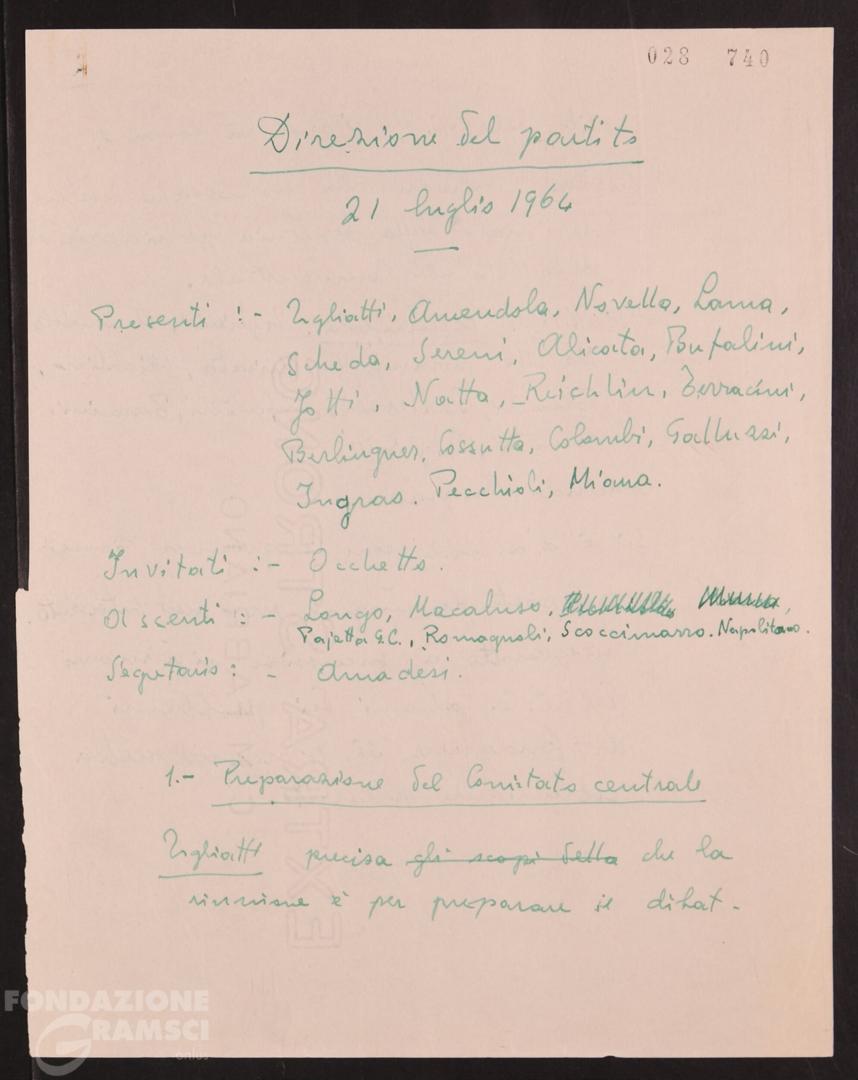 028 740
Direzione del partito
21 luglio 1964
Presenti :- Togliatti, Amendola, Novella, Lama,
Scheda, Sereni, Alicata, Bufalini,
Jotti, Natta, Reichlin, Terracini,
Berlinguer, Cossutta, Colombi, Galluzzi,
Ingrao. Pecchioli, Miana.
Invitati :- Occhetto.
Assenti :- Longo, Macaluso,
Pajetta G.C., Romagnoli, Scoccimarro. Napolitano.
Segretario : - Amadesi.
1.- Preparazione del Comitato centrale
Togliatti precisa gli scopi della che la
riunione è per preparare il dibat-
FONDAZIONE
GRAMSCI
onlus